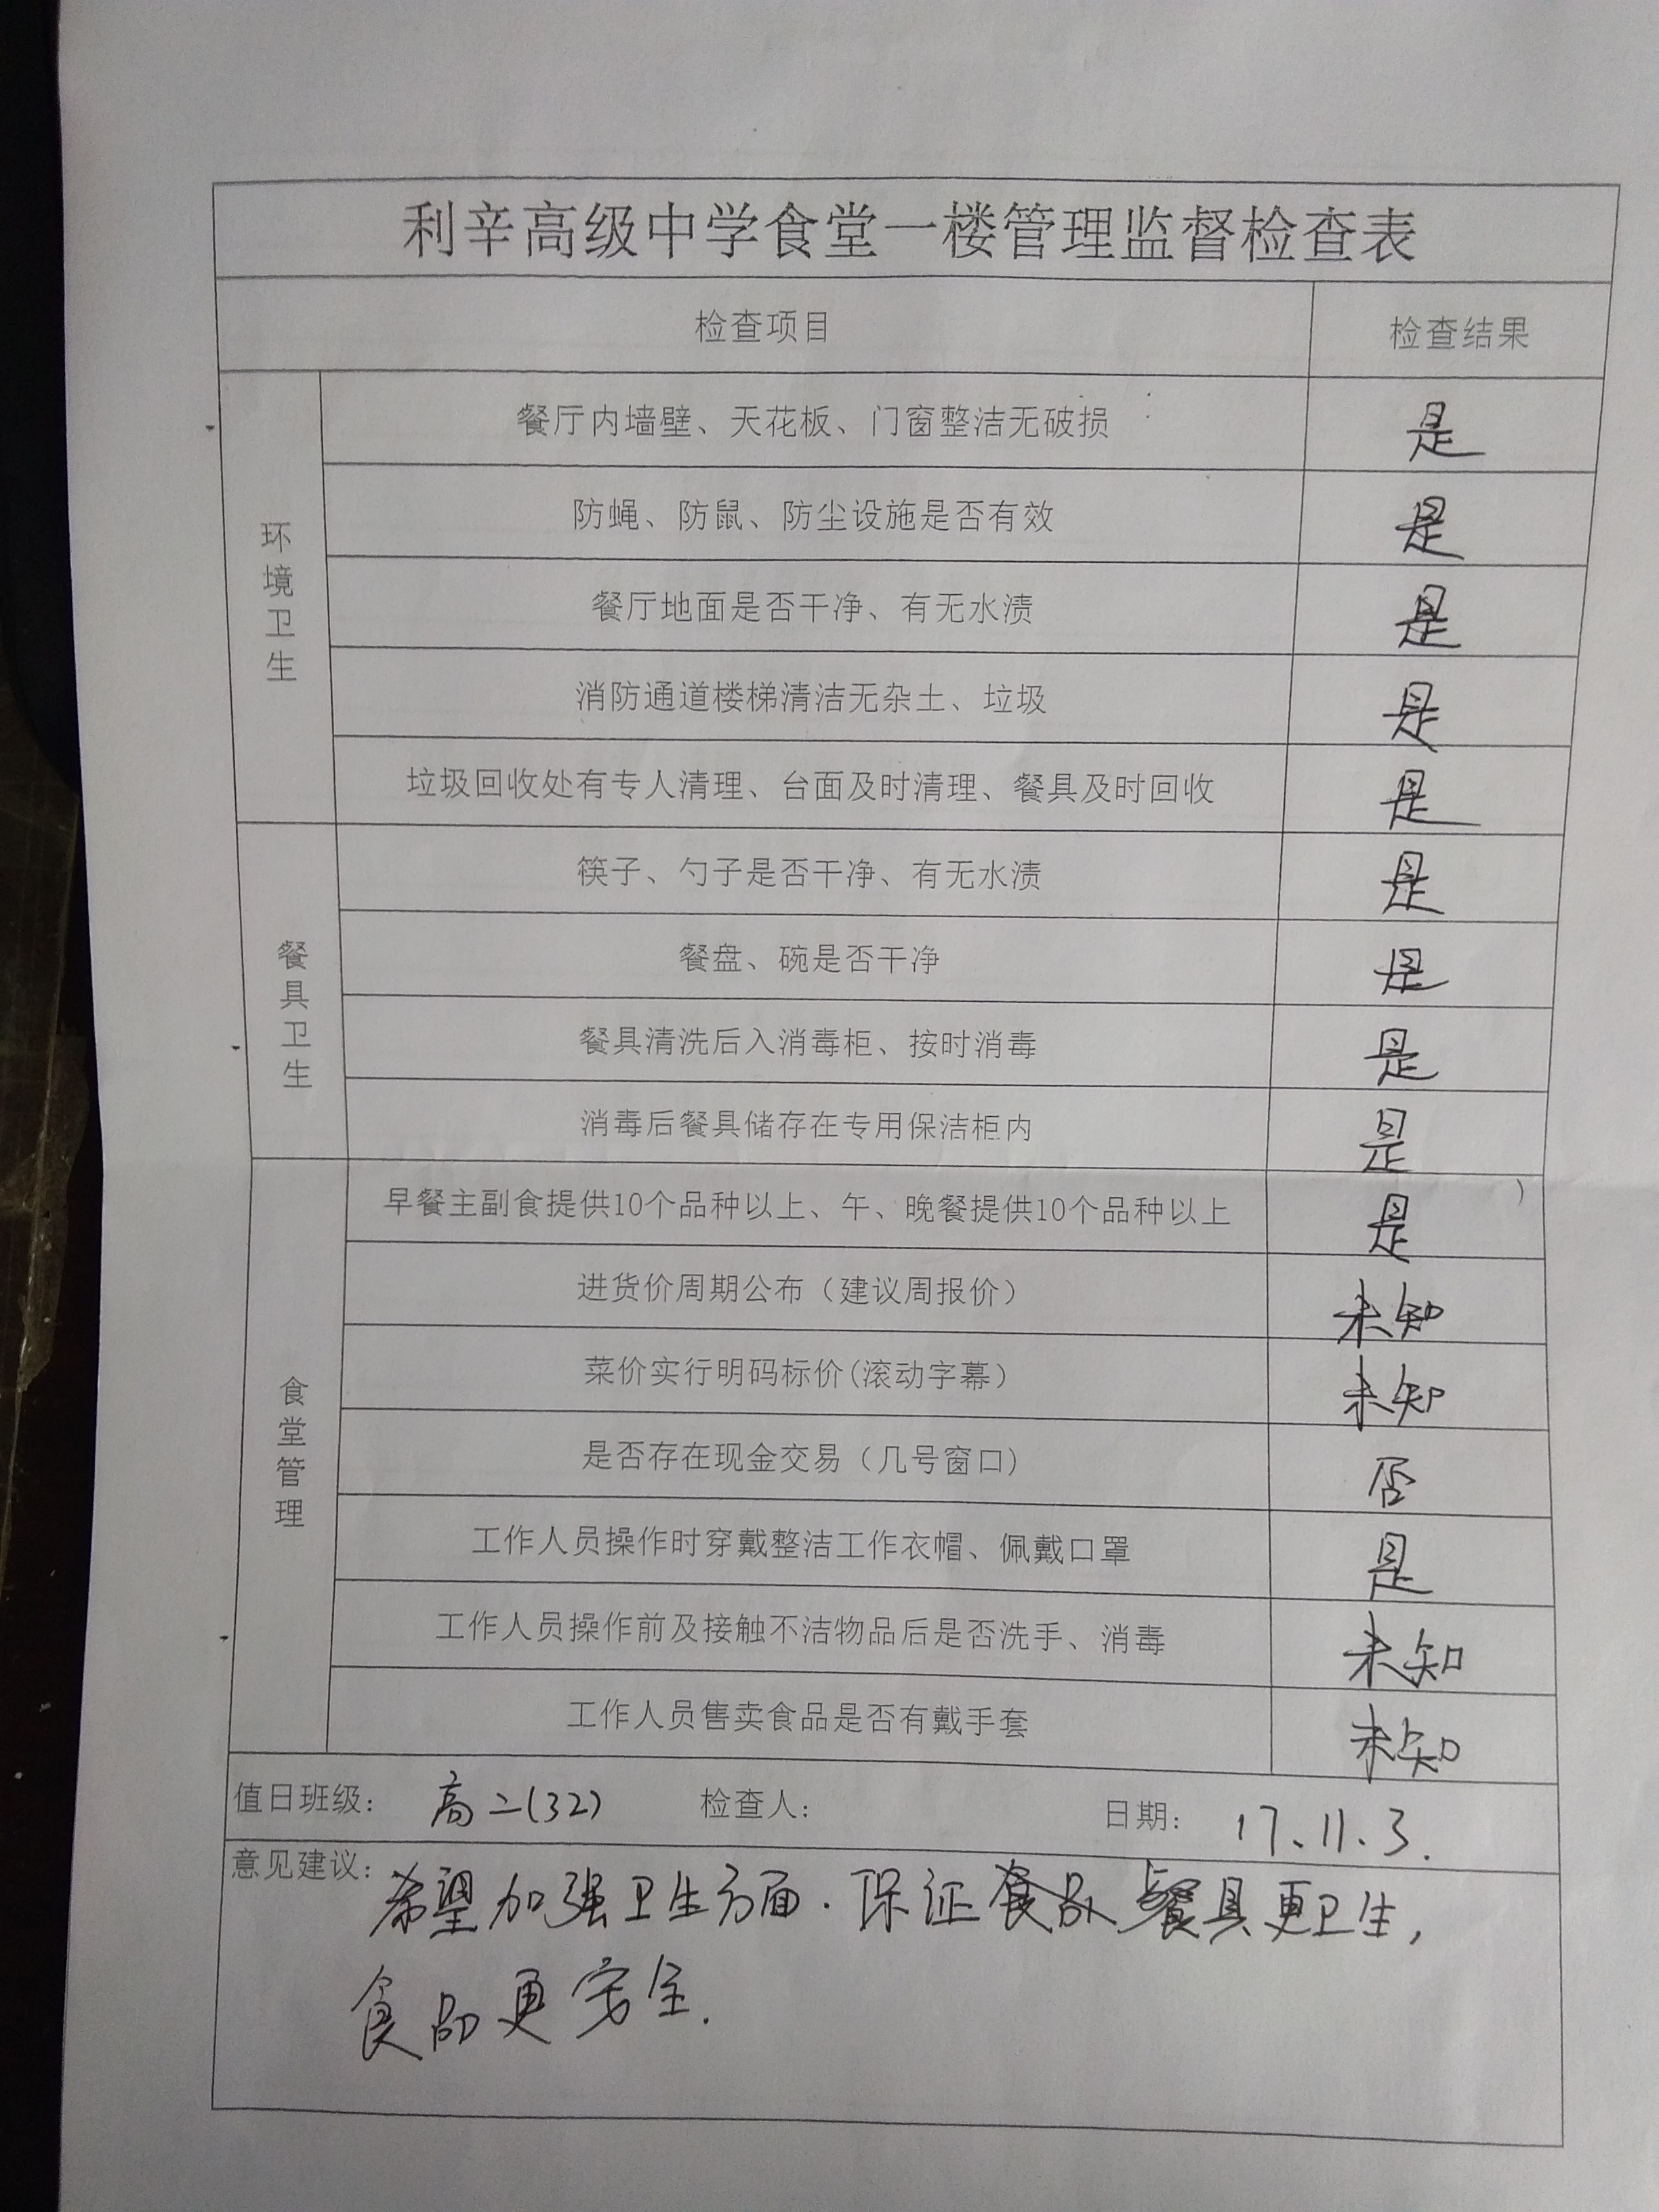 利辛高级中学食堂一楼管理监督检查表
检查项目 检查结果
环境卫生
餐厅内墙壁、天花板、门窗整洁无破损 是
防蝇、防鼠、防尘设施是否有效 是
餐厅地面是否干净、有无水渍 是
消防通道楼梯清洁无杂土、垃圾 是
垃圾回收处有专人清理、台面及时清理、餐具及时回收 是
餐具卫生
筷子、勺子是否干净、有无水渍 是
餐盘、碗是否干净 是
餐具清洗后入消毒柜、按时消毒 是
消毒后餐具储存在专用保洁柜内 是
食堂管理
早餐主副食提供10个品种以上、午、晚餐提供10个品种以上 是
进货价周期公布（建议周报价） 未知
菜价实行明码标价(滚动字幕） 未知
是否存在现金交易（几号窗口） 否
工作人员操作时穿戴整洁工作衣帽、佩戴口罩 是
工作人员操作前及接触不洁物品后是否洗手、消毒 未知
工作人员售卖食品是否有戴手套 未知
值日班级： 高二(32) 检查人： 日期： 17.11.3.
意见建议： 希望加强卫生方面.保证餐具更卫生，
食品更安全.